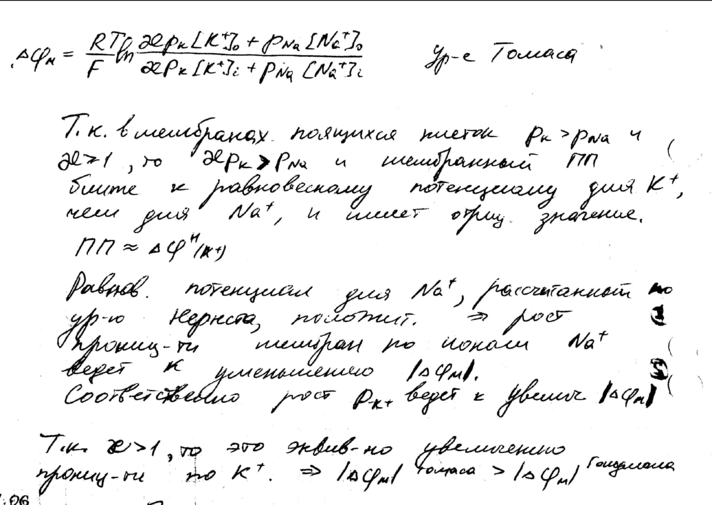 Δφм = RT/F ln (æPк[K⁺]₀ + PNa[Na⁺]₀)/(æPк[K⁺]i + PNa[Na⁺]i) Ур-е Томаса
Т.к. в мембранах покоящихся клеток Pк > PNa и
æ>1, то æPк > PNa и мембранный ПП
ближе к равновесному потенциалу для K⁺,
чем для Na⁺, и имеет отриц. значение.
ПП ≈ Δφᴴ(K+)
Равнов. потенциал для Na⁺, рассчитанный по
ур-ю Нернста, положит. ⇒ рост
прониц-ти мембран по ионам Na⁺
ведет к уменьшению |Δφм|.
Соответственно рост Pк+ ведет к увелич |Δφм|
Т.к. æ>1, то это эквив-но увеличению
прониц-ти по K⁺. ⇒ |Δφм| Томаса > |Δφм| Гольдмана
.06